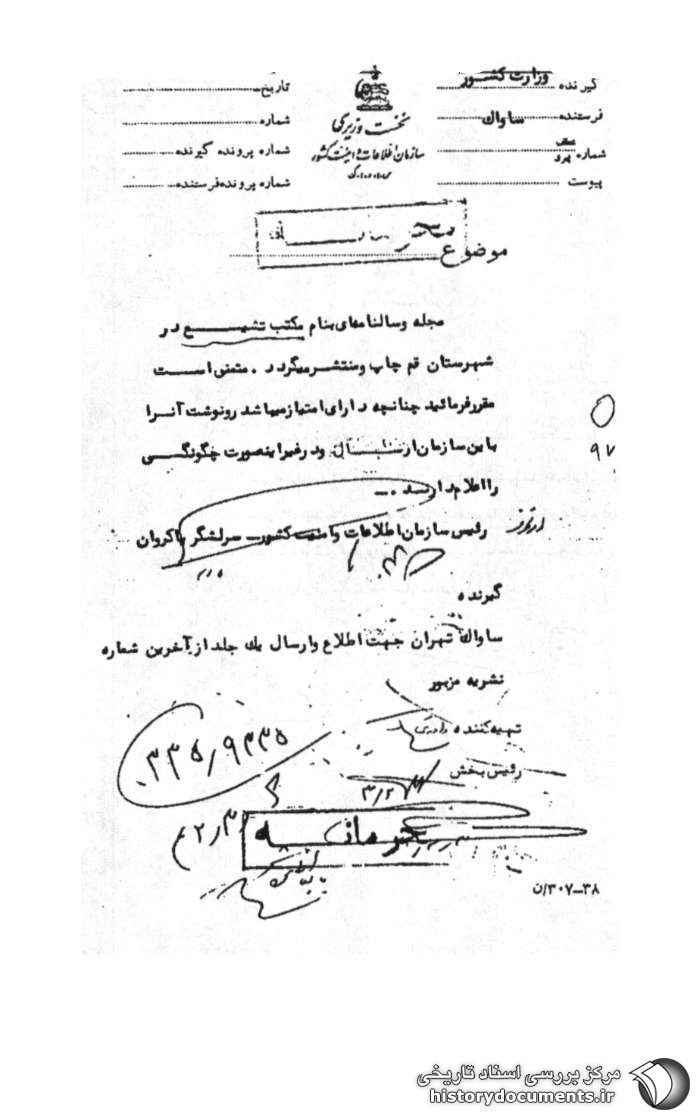 گیرنده وزارت کشور
فرستنده ساواک
شماره
پیوست
نخست وزیری
سازمان اطلاعات و امنیت کشور
س.ا.و.ا.ک
تاریخ
شماره
شماره پرونده گیرنده
شماره پرونده فرستنده
محرمانه
موضوع
مجله و سالنامه‌ای بنام مکتب تشیع در
شهرستان قم چاپ و منتشر میگردد . متمنی است
مقرر فرمائید چنانچه دارای امتیاز میباشد رونوشت آنرا
باین سازمان ارسال ودر غیر اینصورت چگونگی
را اعلام دارند .
رئیس سازمان اطلاعات و امنیت کشور – سرلشگر پاکروان
۹۷
گیرنده
ساواک تهران جهت اطلاع و ارسال یک جلد از آخرین شماره
نشریه مزبور
تهیه کننده
رئیس بخش
محرمانه
۳۰۷–۳۸/ن
مرکز بررسی اسناد تاریخی
historydocuments.ir